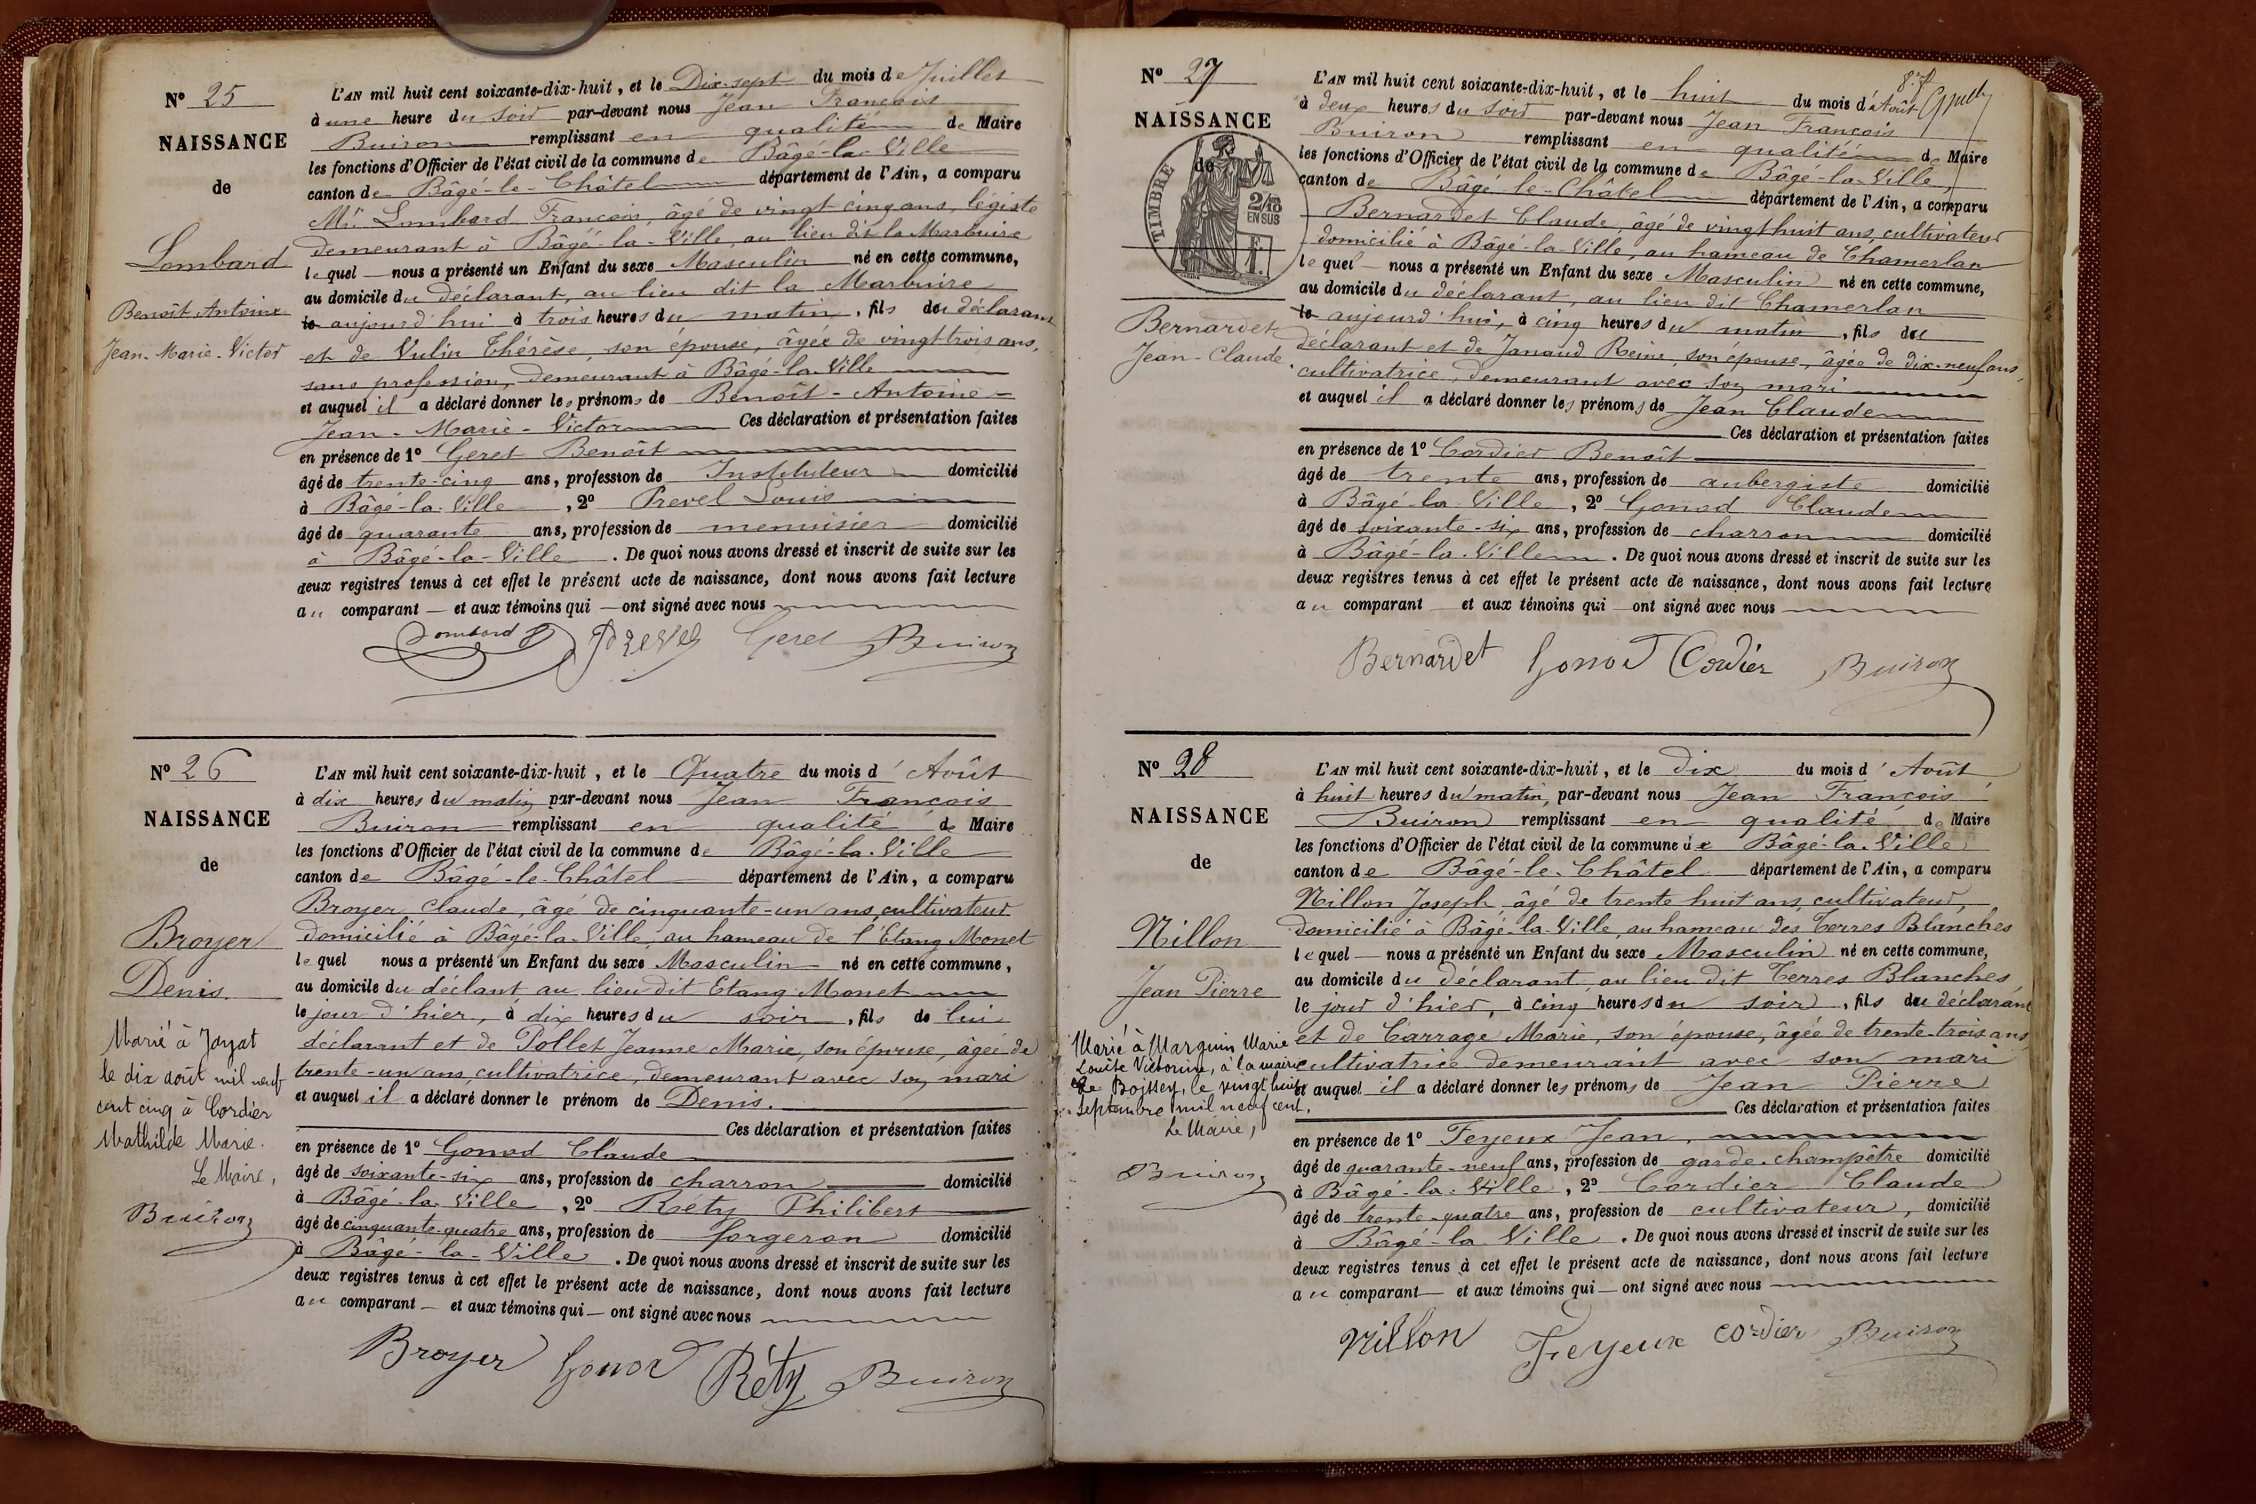 N° 25
NAISSANCE
de
Lombard
Benoît Antoine
Jean-Marie-Victor
L'AN mil huit cent soixante-dix-huit, et le Dix-sept du mois de Juillet
à une heure du soir par-devant nous Jean François
Buiron remplissant en qualité de Maire
les fonctions d'Officier de l'état civil de la commune de Bâgé-la-Ville
canton de Bâgé-le-Châtel département de l'Ain, a comparu
Mr Lombard François, âgé de vingt cinq ans, légiste
demeurant à Bâgé-la-Ville, au lieu dit la Marbuire
lequel — nous a présenté un Enfant du sexe Masculin né en cette commune,
au domicile du déclarant, au lieu dit la Marbuire
le aujourd'hui à trois heures du matin, fils du déclarant
et de Vulin Thérèse, son épouse, âgée de vingt trois ans,
sans profession, demeurant à Bâgé-la-Ville
et auquel il a déclaré donner les prénoms de Benoît-Antoine-
Jean-Marie-Victor Ces déclaration et présentation faites
en présence de 1° Geret Benoît
âgé de trente-cinq ans, profession de Instituteur domicilié
à Bâgé-la-Ville, 2° Prevel Louis
âgé de quarante ans, profession de menuisier domicilié
à Bâgé-la-Ville. De quoi nous avons dressé et inscrit de suite sur les
deux registres tenus à cet effet le présent acte de naissance, dont nous avons fait lecture
au comparant — et aux témoins qui — ont signé avec nous
Lombard Prevel Geret Buiron
N° 26
NAISSANCE
de
Broyer
Denis.
Marié à Jayat
le dix août mil neuf
cent cinq à Cordier
Mathilde Marie.
Le Maire,
Buiron
L'AN mil huit cent soixante-dix-huit, et le Quatre du mois d'Août
à dix heures du matin par-devant nous Jean François
Buiron remplissant en qualité de Maire
les fonctions d'Officier de l'état civil de la commune de Bâgé-la-Ville
canton de Bâgé-le-Châtel département de l'Ain, a comparu
Broyer Claude, âgé de cinquante-un ans, cultivateur
domicilié à Bâgé-la-Ville, au hameau de l'Etang Monet
lequel nous a présenté un Enfant du sexe Masculin né en cette commune,
au domicile du déclant au lieu dit Etang Monet
le jour d'hier, à dix heures du soir, fils de lui
déclarant et de Pollet Jeanne Marie, son épouse, âgée de
trente-un ans, cultivatrice, demeurant avec son mari
et auquel il a déclaré donner le prénom de Denis.
Ces déclaration et présentation faites
en présence de 1° Gonod Claude
âgé de soixante-six ans, profession de charron domicilié
à Bâgé-la-Ville, 2° Réty Philibert
âgé de cinquante-quatre ans, profession de forgeron domicilié
à Bâgé-la-Ville. De quoi nous avons dressé et inscrit de suite sur les
deux registres tenus à cet effet le présent acte de naissance, dont nous avons fait lecture
au comparant — et aux témoins qui — ont signé avec nous
Broyer Gonod Réty Buiron
N° 27
NAISSANCE
de
TIMBRE
2/10
EN SUS
1 f.
Bernardet
Jean-Claude
L'AN mil huit cent soixante-dix-huit, et le huit du mois d'Août
à deux heures du soir par-devant nous Jean François
Buiron remplissant en qualité de Maire
les fonctions d'Officier de l'état civil de la commune de Bâgé-la-Ville,
canton de Bâgé-le-Châtel département de l'Ain, a comparu
Bernardet Claude, âgé de vingt huit ans, cultivateur
domicilié à Bâgé-la-Ville, au hameau de Chamerlan
lequel — nous a présenté un Enfant du sexe Masculin né en cette commune,
au domicile du déclarant, au lieu dit Chamerlan
le aujourd'hui, à cinq heures du matin, fils du
déclarant et de Janaud Reine, son épouse, âgée de dix-neuf ans,
cultivatrice, demeurant avec son mari
et auquel il a déclaré donner les prénoms de Jean Claude
Ces déclaration et présentation faites
en présence de 1° Cordier Benoît
âgé de trente ans, profession de aubergiste domicilié
à Bâgé-la-Ville, 2° Gonod Claude
âgé de soixante-six ans, profession de charron domicilié
à Bâgé-la-Ville. De quoi nous avons dressé et inscrit de suite sur les
deux registres tenus à cet effet le présent acte de naissance, dont nous avons fait lecture
au comparant et aux témoins qui — ont signé avec nous
Bernardet Gonod Cordier Buiron
N° 28
NAISSANCE
de
Nillon
Jean Pierre
Marié à Marguin Marie
Louise Victorine, à la mairie
de Boissey, le vingt huit
septembre mil neuf cent.
Le Maire,
Buiron
L'AN mil huit cent soixante-dix-huit, et le dix du mois d'Août
à huit heures du matin, par-devant nous Jean François
Buiron remplissant en qualité de Maire
les fonctions d'Officier de l'état civil de la commune de Bâgé-la-Ville
canton de Bâgé-le-Châtel département de l'Ain, a comparu
Nillon Joseph, âgé de trente huit ans, cultivateur,
domicilié à Bâgé-la-Ville, au hameau des Terres Blanches
lequel — nous a présenté un Enfant du sexe Masculin né en cette commune,
au domicile du déclarant, au lieu dit Terres Blanches
le jour d'hier, à cinq heures du soir, fils du déclarant
et de Carrage Marie, son épouse, âgée de trente-trois ans,
cultivatrice demeurant avec son mari
et auquel il a déclaré donner les prénoms de Jean Pierre
Ces déclaration et présentation faites
en présence de 1° Feyeux Jean,
âgé de quarante-neuf ans, profession de garde-champêtre domicilié
à Bâgé-la-Ville, 2° Cordier Claude
âgé de trente-quatre ans, profession de cultivateur, domicilié
à Bâgé-la-Ville. De quoi nous avons dressé et inscrit de suite sur les
deux registres tenus à cet effet le présent acte de naissance, dont nous avons fait lecture
au comparant — et aux témoins qui — ont signé avec nous
Nillon Feyeux Cordier Buiron